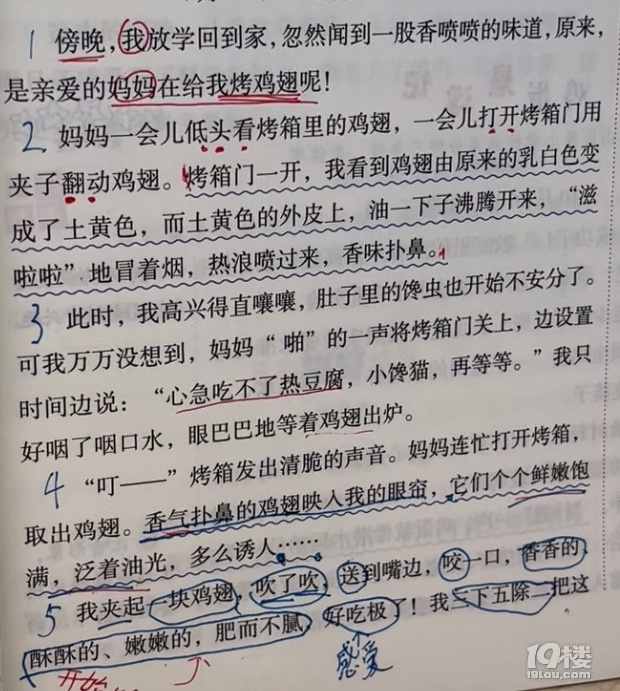 1 傍晚，我放学回到家，忽然闻到一股香喷喷的味道，原来，
是亲爱的妈妈在给我烤鸡翅呢！
2 妈妈一会儿低头看烤箱里的鸡翅，一会儿打开烤箱门用
夹子翻动鸡翅。烤箱门一开，我看到鸡翅由原来的乳白色变
成了土黄色，而土黄色的外皮上，油一下子沸腾开来，“滋
啦啦”地冒着烟，热浪喷过来，香味扑鼻。
3 此时，我高兴得直嚷嚷，肚子里的馋虫也开始不安分了。
可我万万没想到，妈妈“啪”的一声将烤箱门关上，边设置
时间边说：“心急吃不了热豆腐，小馋猫，再等等。”我只
好咽了咽口水，眼巴巴地等着鸡翅出炉。
4 “叮——”烤箱发出清脆的声音。妈妈连忙打开烤箱，
取出鸡翅。香气扑鼻的鸡翅映入我的眼帘，它们个个鲜嫩饱
满，泛着油光，多么诱人……
5 我夹起一块鸡翅，吹了吹，送到嘴边，咬一口，香香的、
酥酥的、嫩嫩的，肥而不腻，好吃极了！我三下五除二把这
感受
开始
19楼
19lou.com